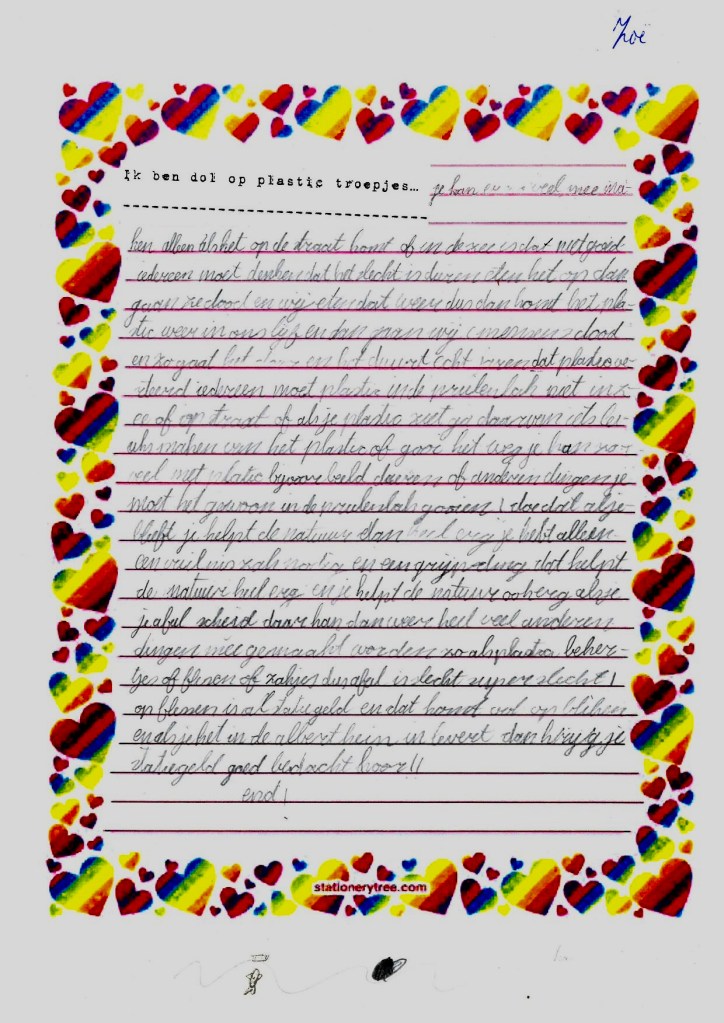 Zoë
Ik ben dol op plastic troepjes...
je kan er veel mee ma-
ken alleen als het op de straat komt of in de zee is dat niet goed
iedereen moet denken dat het slecht is dieren eten het op dan
gaan ze dood en wij eten dat weer dus dan komt het pla-
tic weer in ons lijf en dan gaan wij mensens dood
en zo gaat het en het duurt echt dat plastic ve-
iedereen moet plastic in de vuilen bak niet in z-
ee of op straat of als je plastic ziet je daarvan iets
maken van het plastic of gooi het weg je kan zo
veel met platic bijvoorbeeld of anderen dingen je
moet het gewoon in de vuilenbak gooien! doe dat alsje
blieft je helpt de natuur dan heel erg je hebt alleen
een vuilniszak nodig en een grijp ding dat helpt
de natuur heel erg en je helpt de natuur ook erg als je
je afval scheid daar kan dan weer heel veel anderen
dingen mee gemaakt worden zo als plastic beker-
tjes of flesen of zakjes dus afval is slecht super slecht!
op flessen is al statiegeld en dat komt ook op blikken
en als je het in de albert hein in levert dan krijg je
statiegeld goed bedacht hoor!!
end!
stationerytree.com